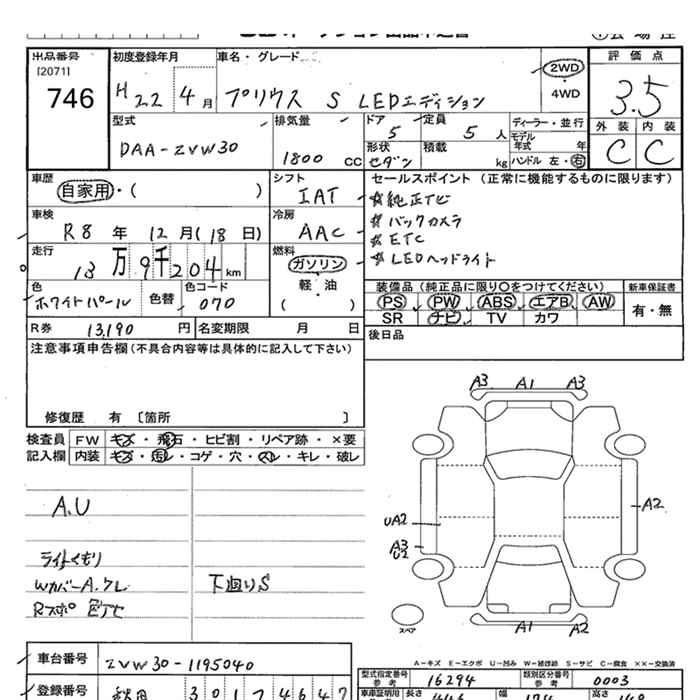 出品番号 初度登録年月 車名・グレード 評価点
[2071]
746 H22 4月 プリウス S LEDエディション 2WD 3.5
・
4WD
型式 排気量 ドア 定員 ディーラー・並行 外装 内装
DAA-ZVW30 1800 cc 5 5人 モデル年式 年 C C
形状 積載 ハンドル 左・右
セダン kg
車歴 シフト セールスポイント (正常に機能するものに限ります)
自家用・( ) IAT ☆純正TV
車検 冷房 #バックカメラ
R8年 12月(18日) AAC #ETC
走行 燃料 #LEDヘッドライト
13万9千204km ガソリン
色 色替 色コード 軽・油 装備品 (純正品に限り○をつけてください) 新車保証書
ホワイトパール 070 ( ) PS PW ABS エアB AW 有・無
SR ナビ TV カワ
R券 13,190円 名変期限 月 日 後日品
注意事項申告欄(不具合内容等は具体的に記入して下さい)
修復歴 有 〔箇所 〕
検査員 FW キズ・飛石・ヒビ割・リペア跡・×要
記入欄 内装 キズ・汚レ・コゲ・穴・スレ・キレ・破レ
A3 A1 A3
A.U
UA2 A2
A3
U2
ライトくもり
WカバーA.ワレ 下廻りS
Rスポ 色アセ
スペア
A1 A2
A-キズ E-エクボ U-凹み W-補修跡 S-サビ C-腐食 ××-交換済
車台番号 ZVW30-1195040
型式指定番号 参考 16294 類別区分番号 参考 0003
登録番号 301 4647
長さ 幅 高さ